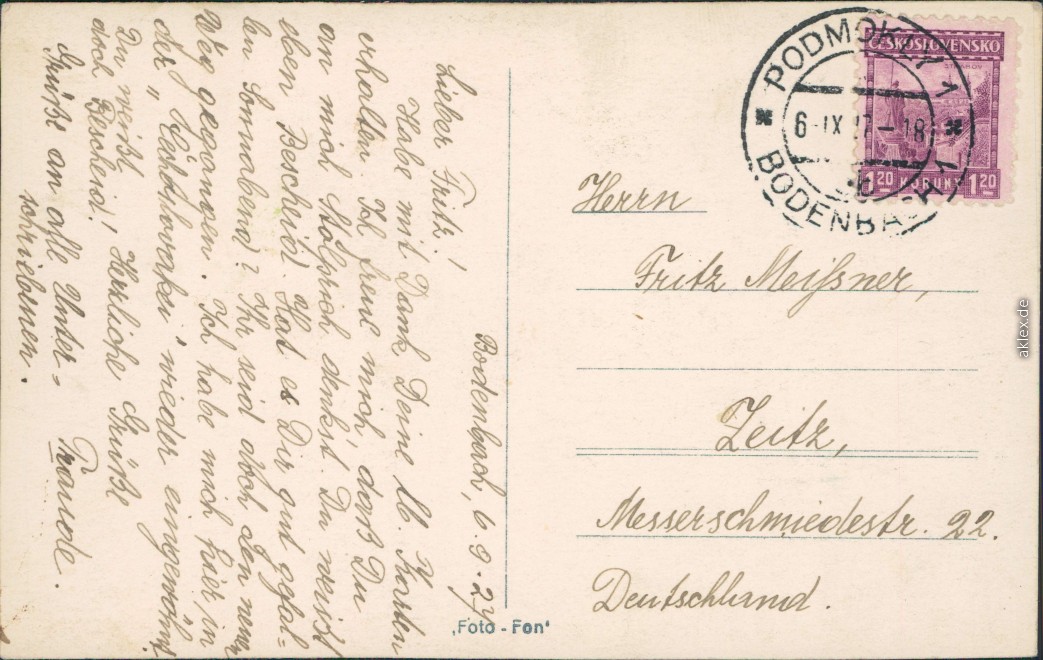 Bodenbach, 6.9.27
Lieber Fritz!
Habe mit Dank Deine lb. Karten
erhalten. Ich freue mich, dass Du
an mich denkst. Du weisst
eben Bescheid. Hat es Dir gut gefal-
len Sonnabend? Ihr seid doch den
Weg gegangen. Ich habe mich hier in
der „Tschechoslovakei" wieder eingewöhnt
Du weisst
doch Bescheid! Herzliche Grüße
Grüße an alle Unter-
schriebenen. Traude.
PODMOKLY 1
6 IX 27-18
BODENBACH 1
ČESKOSLOVENSKO
1 20 KORUNY 1 20
Herrn
Fritz Meißner,
Zeitz,
Messerschmiedestr. 22.
Deutschland.
"Foto-Fon"
aklex.de